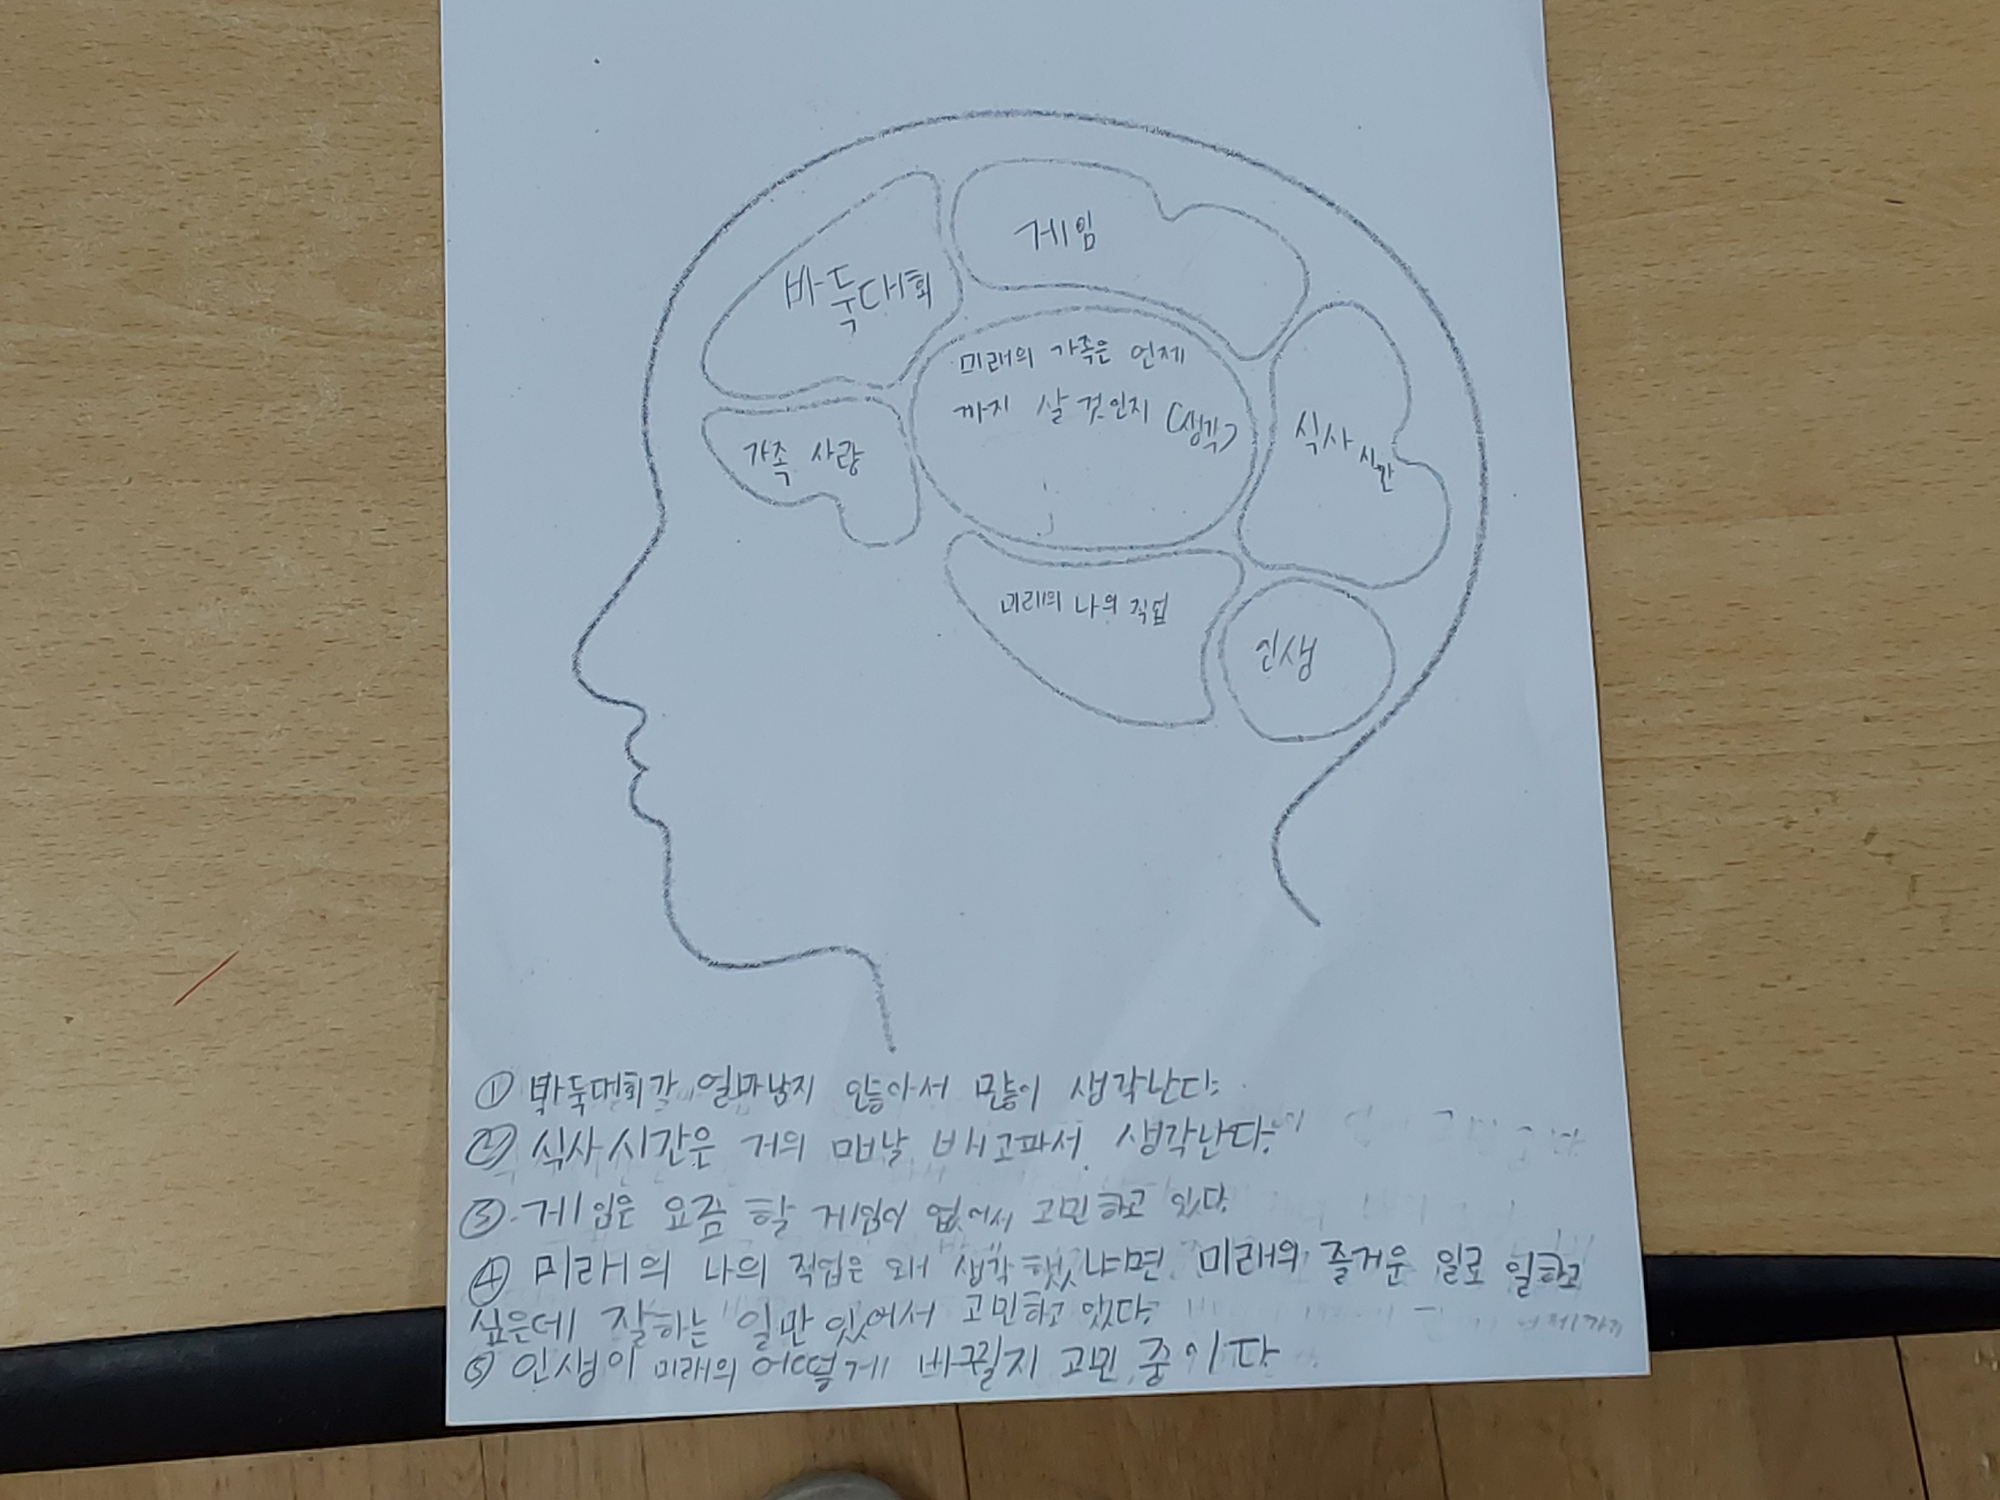 게임
바둑대회
미래의 가족은 언제
까지 살 것인지 (생각)
가족 사랑
식사 시간
미래의 나의 직업
인생
① 바둑대회가 얼마남지 않아서 많이 생각난다.
② 식사시간은 거의 매날 배고파서 생각난다.
③ 게임은 요즘 할 게임이 없어서 고민하고 있다.
④ 미래의 나의 직업은 왜 생각했냐면 미래의 즐거운 일로 일하고
싶은데 잘하는 일만 있어서 고민하고 있다.
⑤ 인생이 미래의 어떻게 바뀔지 고민 중이다